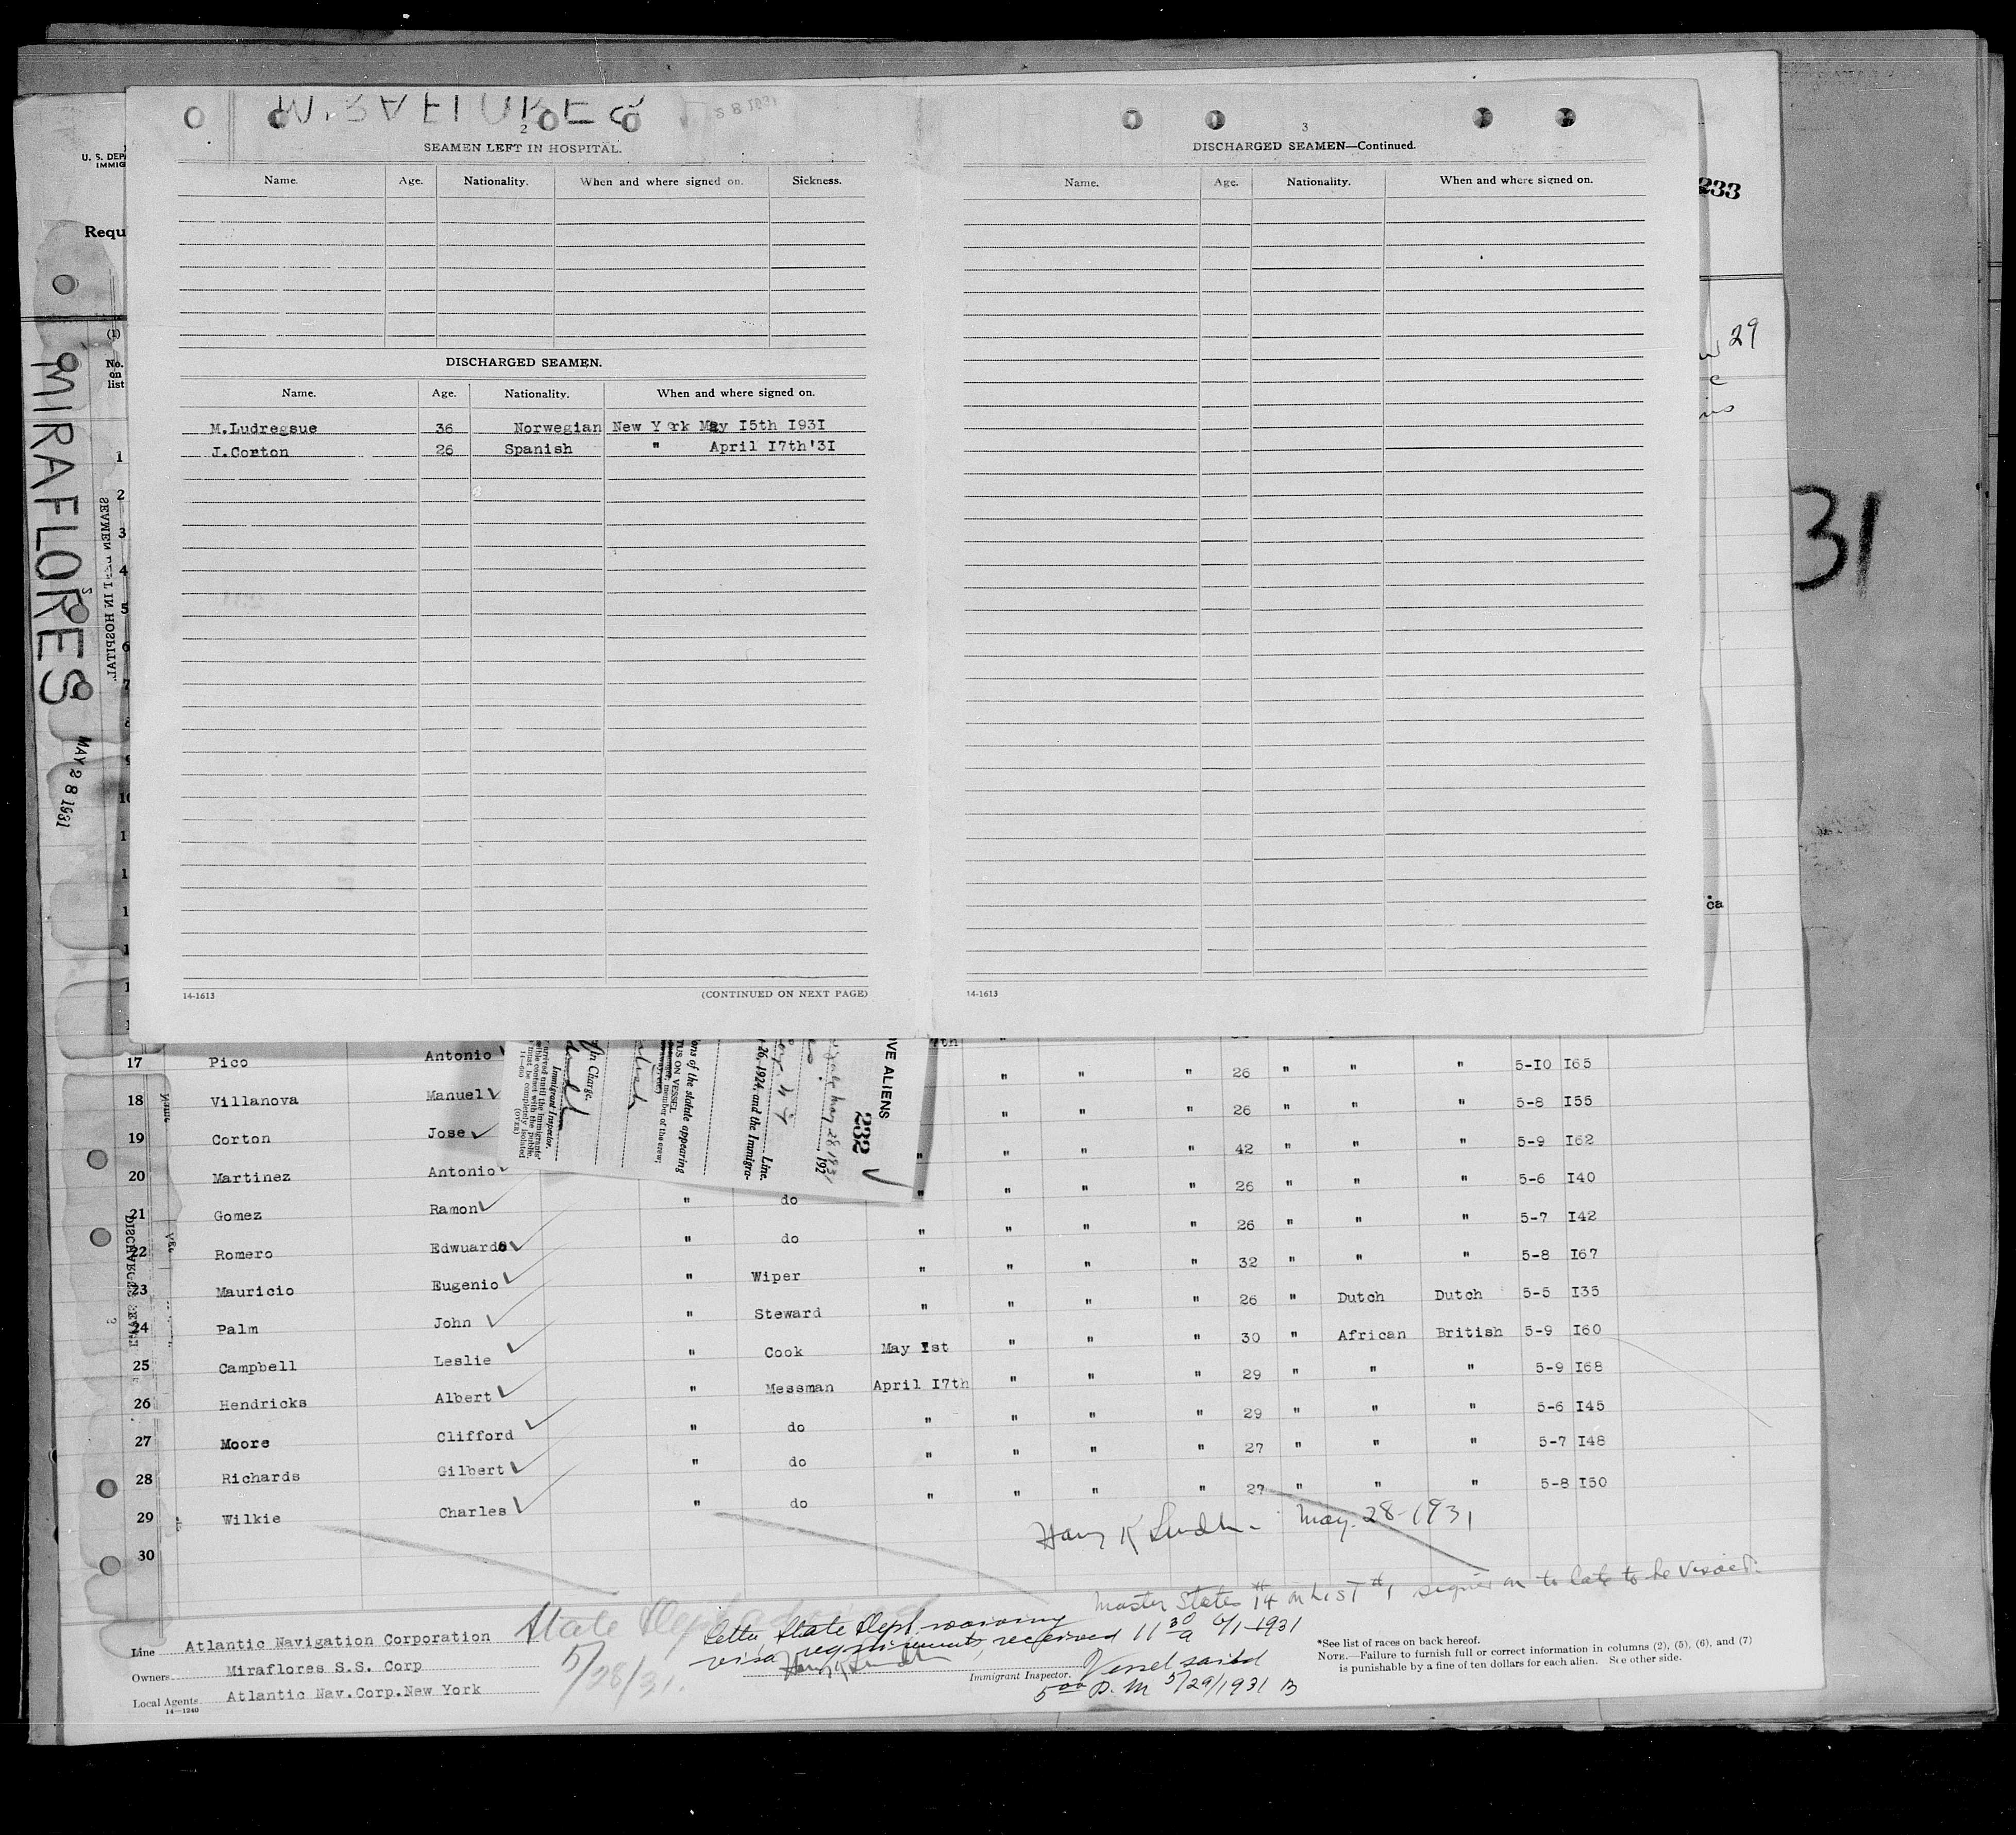 MIRAFLORES
MAY 28 1931
233
29
31
2
SEAMEN LEFT IN HOSPITAL.
Name. Age. Nationality. When and where signed on. Sickness.
DISCHARGED SEAMEN.
Name. Age. Nationality. When and where signed on.
M.Ludregsue 36 Norwegian New York May I5th I93I
J.Corton 26 Spanish " April I7th'3I
14-1613 (CONTINUED ON NEXT PAGE)
3
DISCHARGED SEAMEN—Continued.
Name. Age. Nationality. When and where signed on.
14-1613
(1)
No. on list
1
2
3
4
5
6
7
SEAMEN LEFT IN HOSPITAL
IVE ALIENS
232
Line.
26, 1924, and the Immigra-
ions of the statute appearing
TUS ON VESSEL
member of the crew;
In Charge.
Immigrant Inspector.
(OVER)
17 Pico Antonio " " " 26 " " " 5-I0 I65
18 Villanova Manuel " " " 26 " " " 5-8 I55
19 Corton Jose " " " " 42 " " " 5-9 I62
20 Martinez Antonio " " " " 26 " " " 5-6 I40
21 Gomez Ramon " do " " " " 26 " " " 5-7 I42
22 Romero Edwuardo " do " " " " 32 " " " 5-8 I67
23 Mauricio Eugenio " Wiper " " " " 26 " Dutch Dutch 5-5 I35
24 Palm John " Steward " " " " 30 " African British 5-9 I60
25 Campbell Leslie " Cook May Ist " " " 29 " " " 5-9 I68
26 Hendricks Albert " Messman April I7th " " " 29 " " " 5-6 I45
27 Moore Clifford " do " " " " 27 " " " 5-7 I48
28 Richards Gilbert " do " " " " 27 " " " 5-8 I50
29 Wilkie Charles " do
30
May. 28-1931
Master States #14 on List #1 signed on to late to be visaed.
State Dept
5/28/31.
Letter, State Dept. waiving
visa requirements, received 11 30 a 6/1-1931
Vessel sailed
5 00 P.M 5/29/1931
Line Atlantic Navigation Corporation
Owners Miraflores S.S. Corp
Local Agents Atlantic Nav.Corp.New York
14—1240
Immigrant Inspector.
*See list of races on back hereof.
NOTE.—Failure to furnish full or correct information in columns (2), (5), (6), and (7)
is punishable by a fine of ten dollars for each alien. See other side.